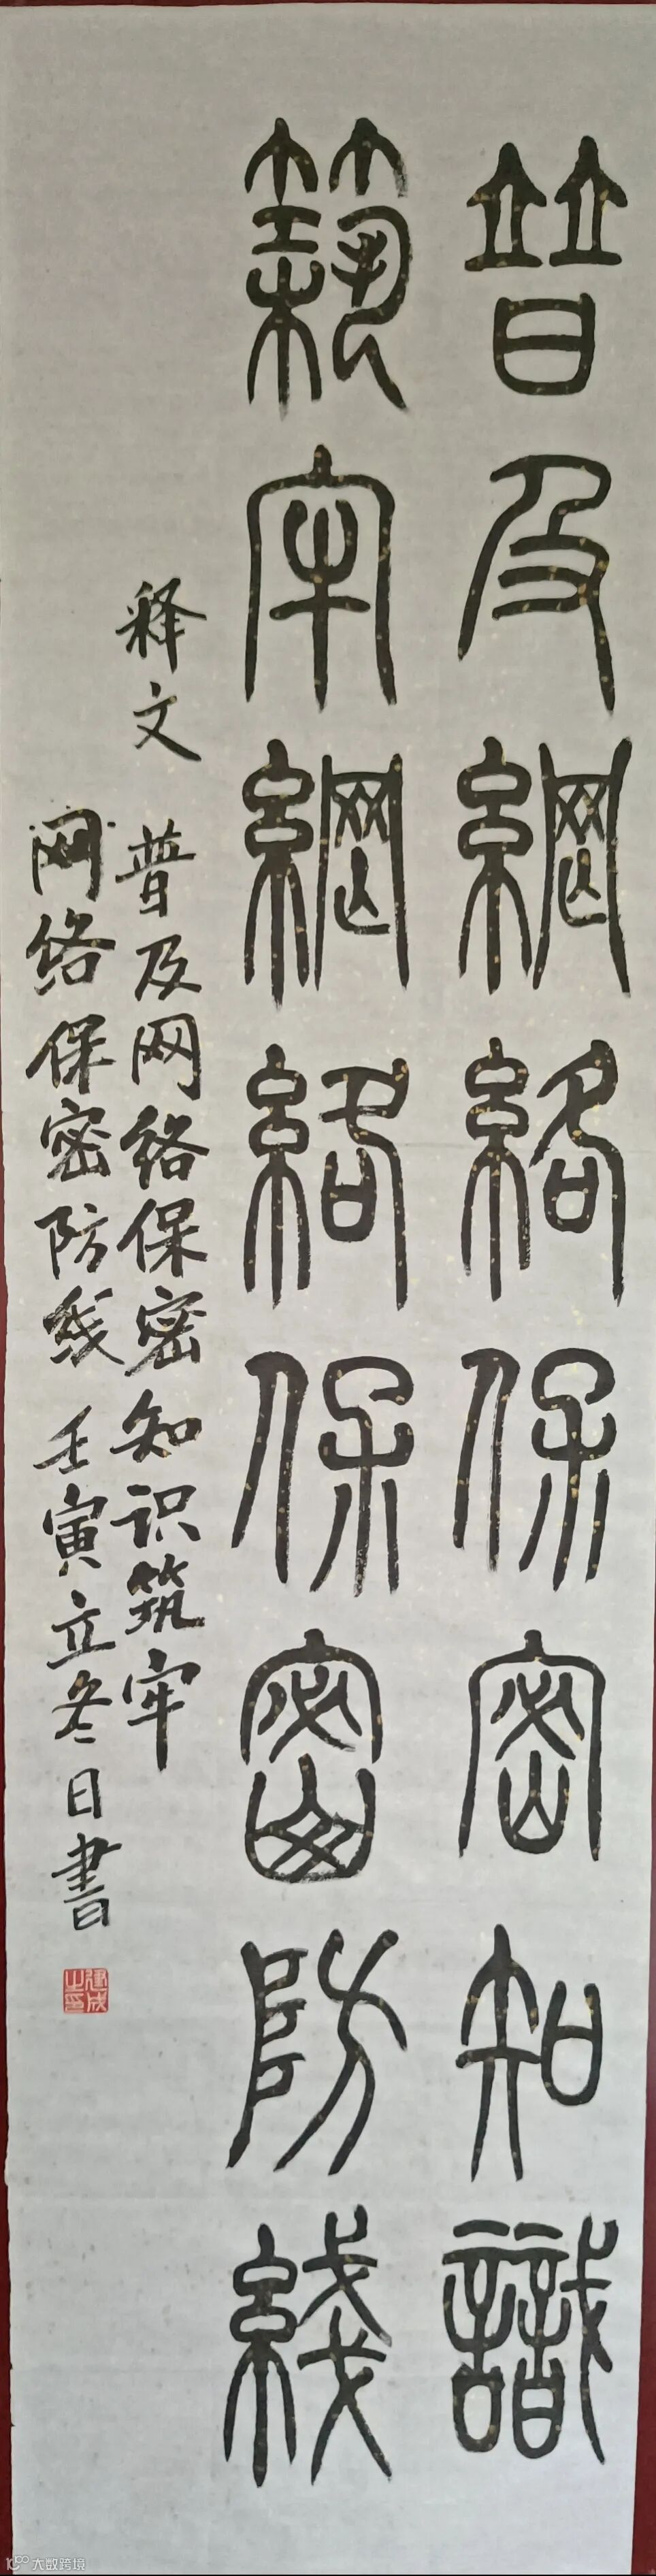 普及網絡保密知識
築牢網絡保密防綫
释文 普及网络保密知识筑牢
网络保密防线 壬寅立冬日書
建成之印
大数跨境